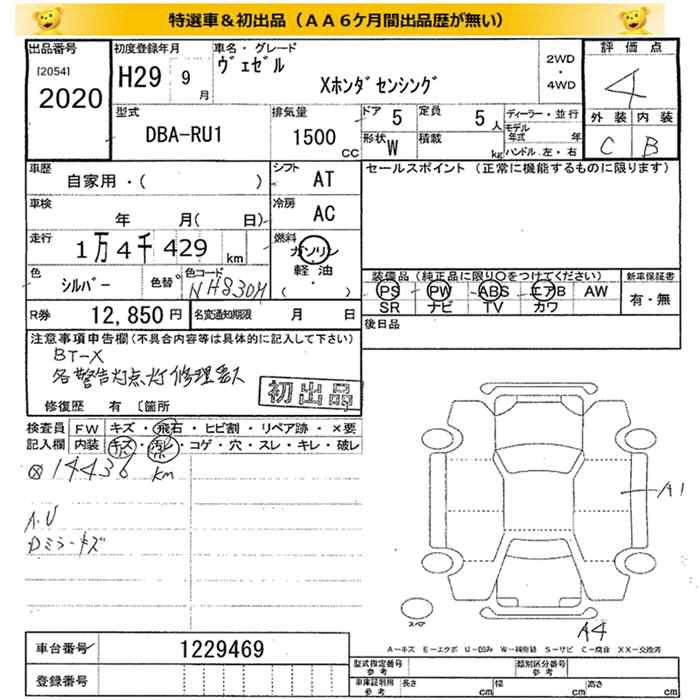 特選車&初出品(AA6ケ月間出品歴が無い)
出品番号
[2054]
2020
初度登録年月
H29 9月
車名・グレード
ヴェゼル
Xホンダセンシング
2WD
・
4WD
評価点
4
外装 内装
C B
型式
DBA-RU1
排気量
1500 CC
ドア 5
定員 5人
形状 W
積載 kg
ディーラー・並行
モデル年式 年
ハンドル 左・右
車歴
自家用・( )
シフト AT
車検
年 月( 日)
冷房 AC
走行
1万4千429 km
燃料
ガソリン
軽油
( )
色 シルバー
色替
色コード NH830M
R券 12,850円
名変通知期限 月 日
セールスポイント(正常に機能するものに限ります)
装備品(純正品に限り○をつけてください)
PS PW ABS エアB AW
SR ナビ TV カワ
新車保証書
有・無
後日品
注意事項申告欄(不具合内容等は具体的に記入して下さい)
BT-X
各警告灯点灯修理要ス
初出品
修復歴 有 〔箇所
検査員記入欄
FW キズ・飛石・ヒビ割・リペア跡・×要
内装 キズ・汚レ・コゲ・穴・スレ・キレ・破レ
ⓧ 14436 km
A.U
Dミラーキズ
A1
A4
スペア
A-キズ E-エクボ U-凹み W-補修跡 S-サビ C-腐食 XX-交換済
車台番号 1229469
登録番号
型式指定番号 参考
類別区分番号 参考
車庫証明用 参考
長さ cm
幅 cm
高さ cm